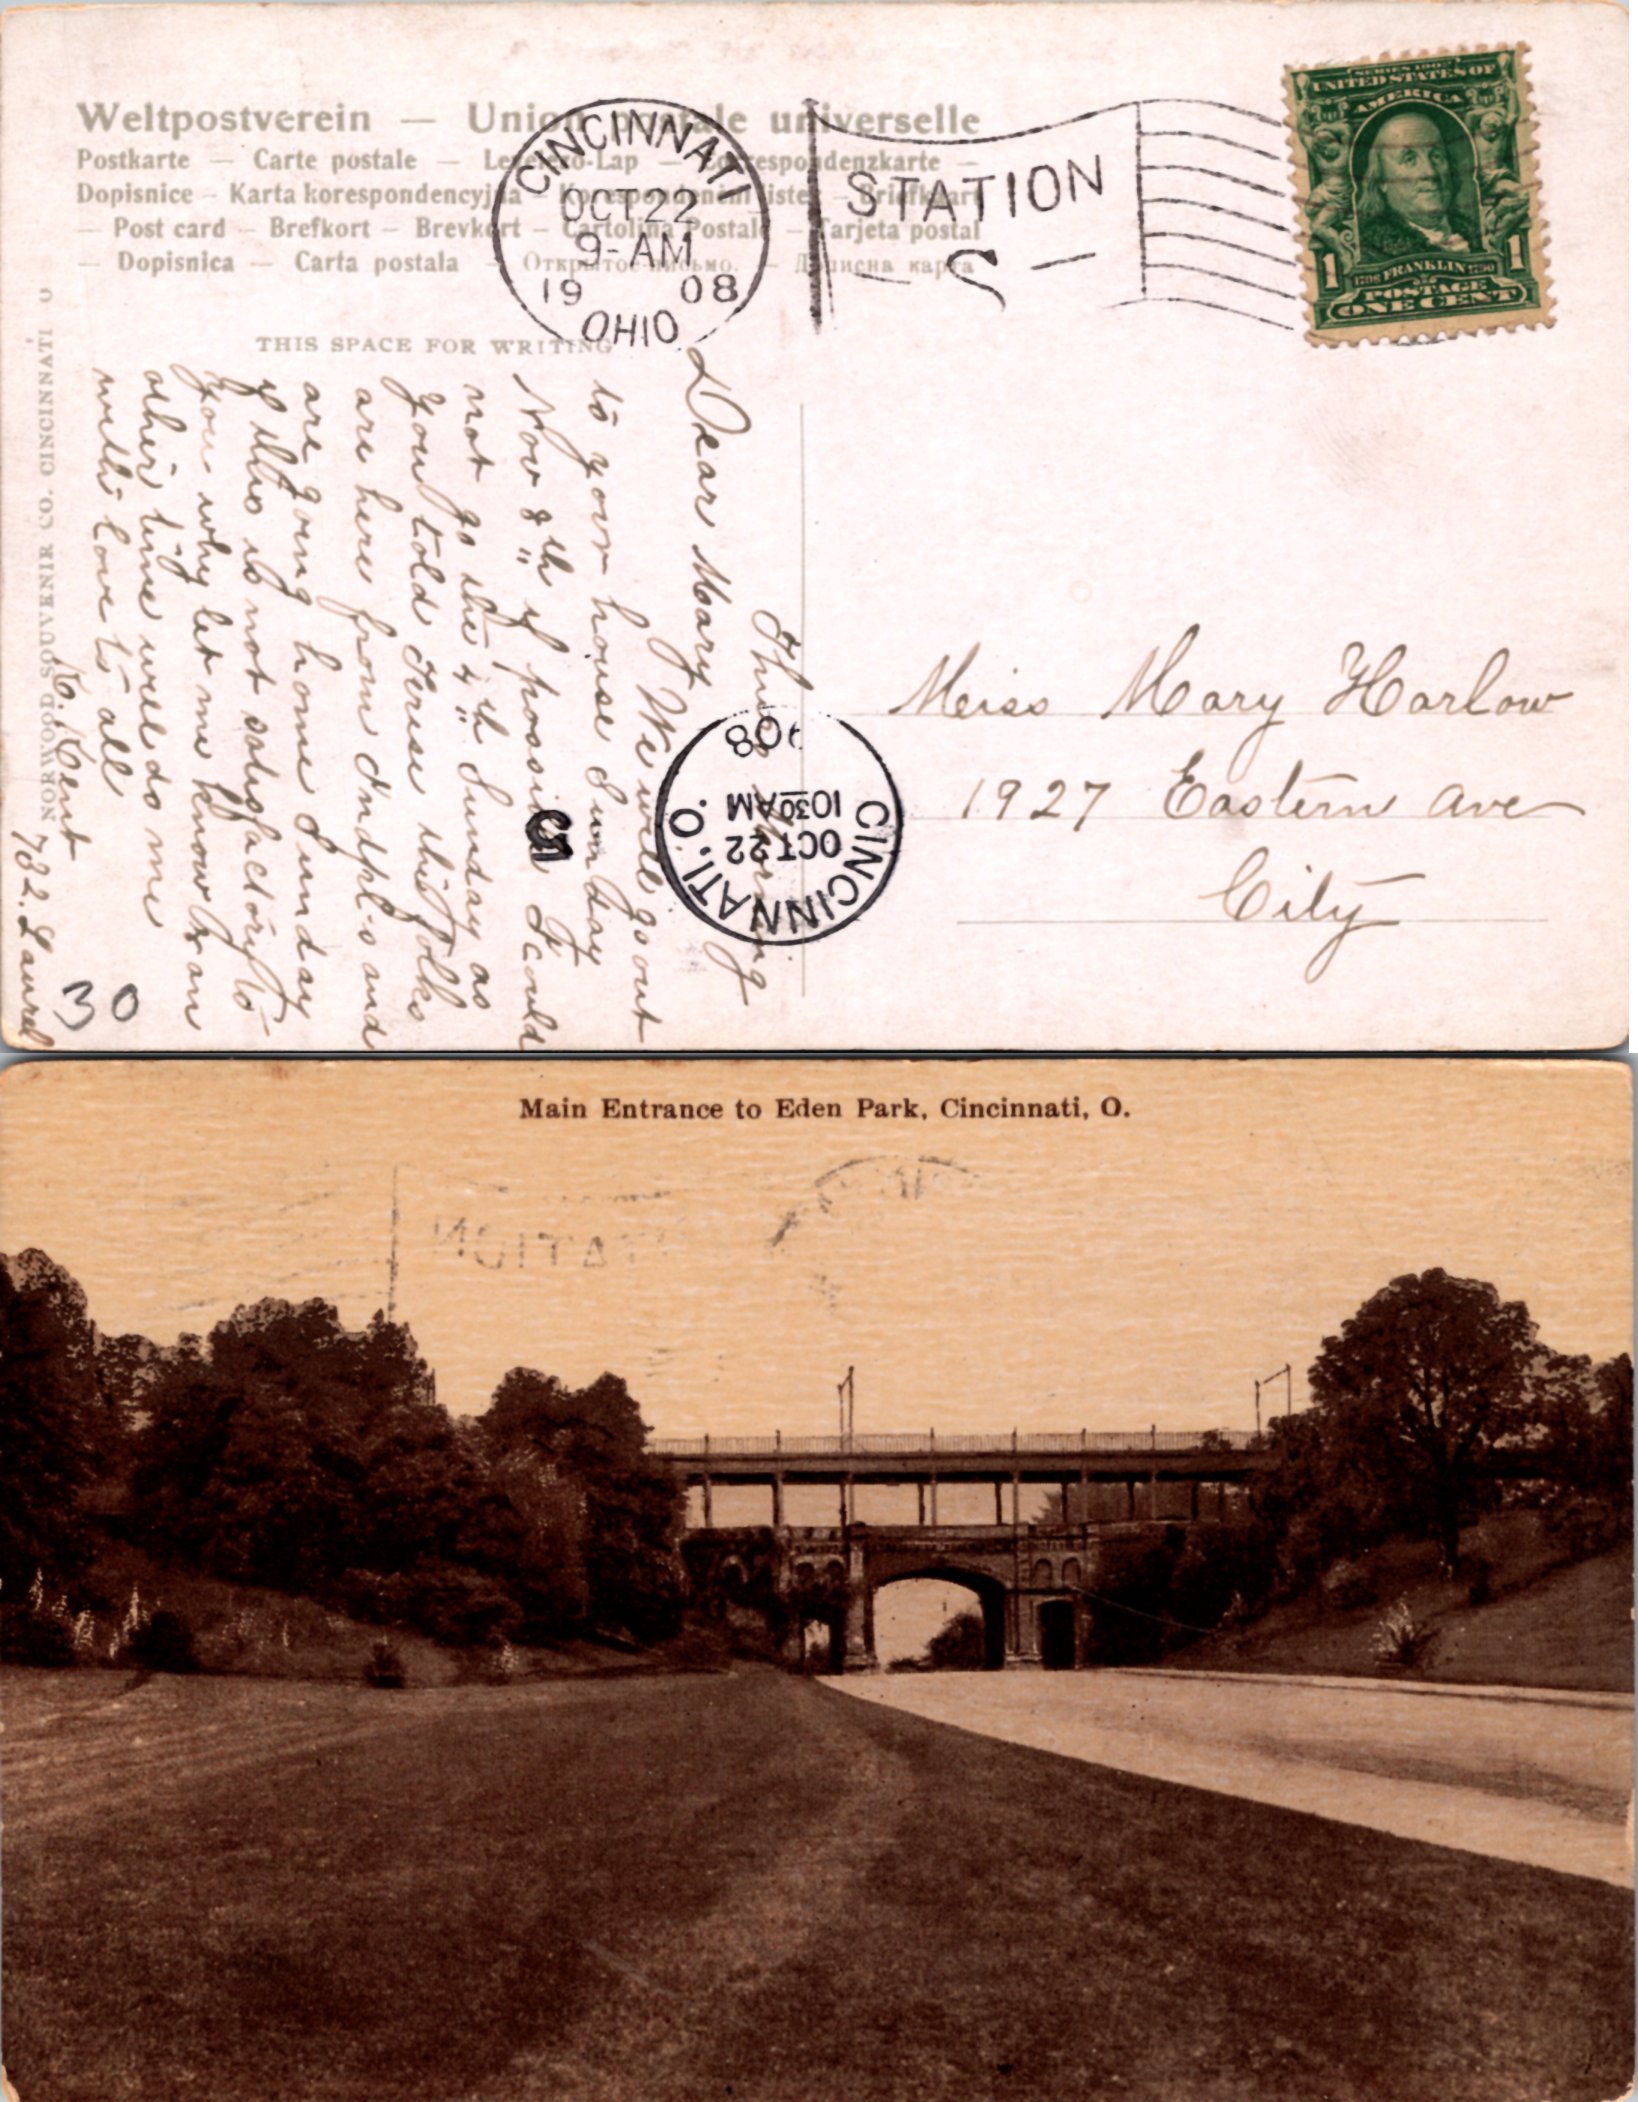 Weltpostverein — Union postale universelle
Postkarte — Carte postale — Levelezö-Lap — Correspondenzkarte —
Dopisnice — Karta korespondencyjna — Korespondencni listek — Briefkaart
— Post card — Brefkort — Brevkort — Cartolina Postale — Tarjeta postal
— Dopisnica — Carta postala — Открытое письмо. — Дописна карта
THIS SPACE FOR WRITING
NORWOOD SOUVENIR CO. CINCINNATI O
CINCINNATI
OCT 22
9-AM
1908
OHIO
STATION
S
SERIES 1902
UNITED STATES OF
AMERICA
1706 FRANKLIN 1790
POSTAGE
1 1
ONE CENT
Thurs Morning
Dear Mary
We will go out
to your house Sunday
Nov 8th if possible I could
not go the 4th Sunday as
you told Terese the folks
are here from Indpl-s and
are going home Sunday
if this is not satisfactory to
you why let me know an
other time will do me
with love to all
782. Laurel
CINCINNATI. O.
OCT 22
10 30 AM
1908
5
30
Meiss Mary Harlow
1927 Eastern Ave
City
Main Entrance to Eden Park, Cincinnati, O.
STATION